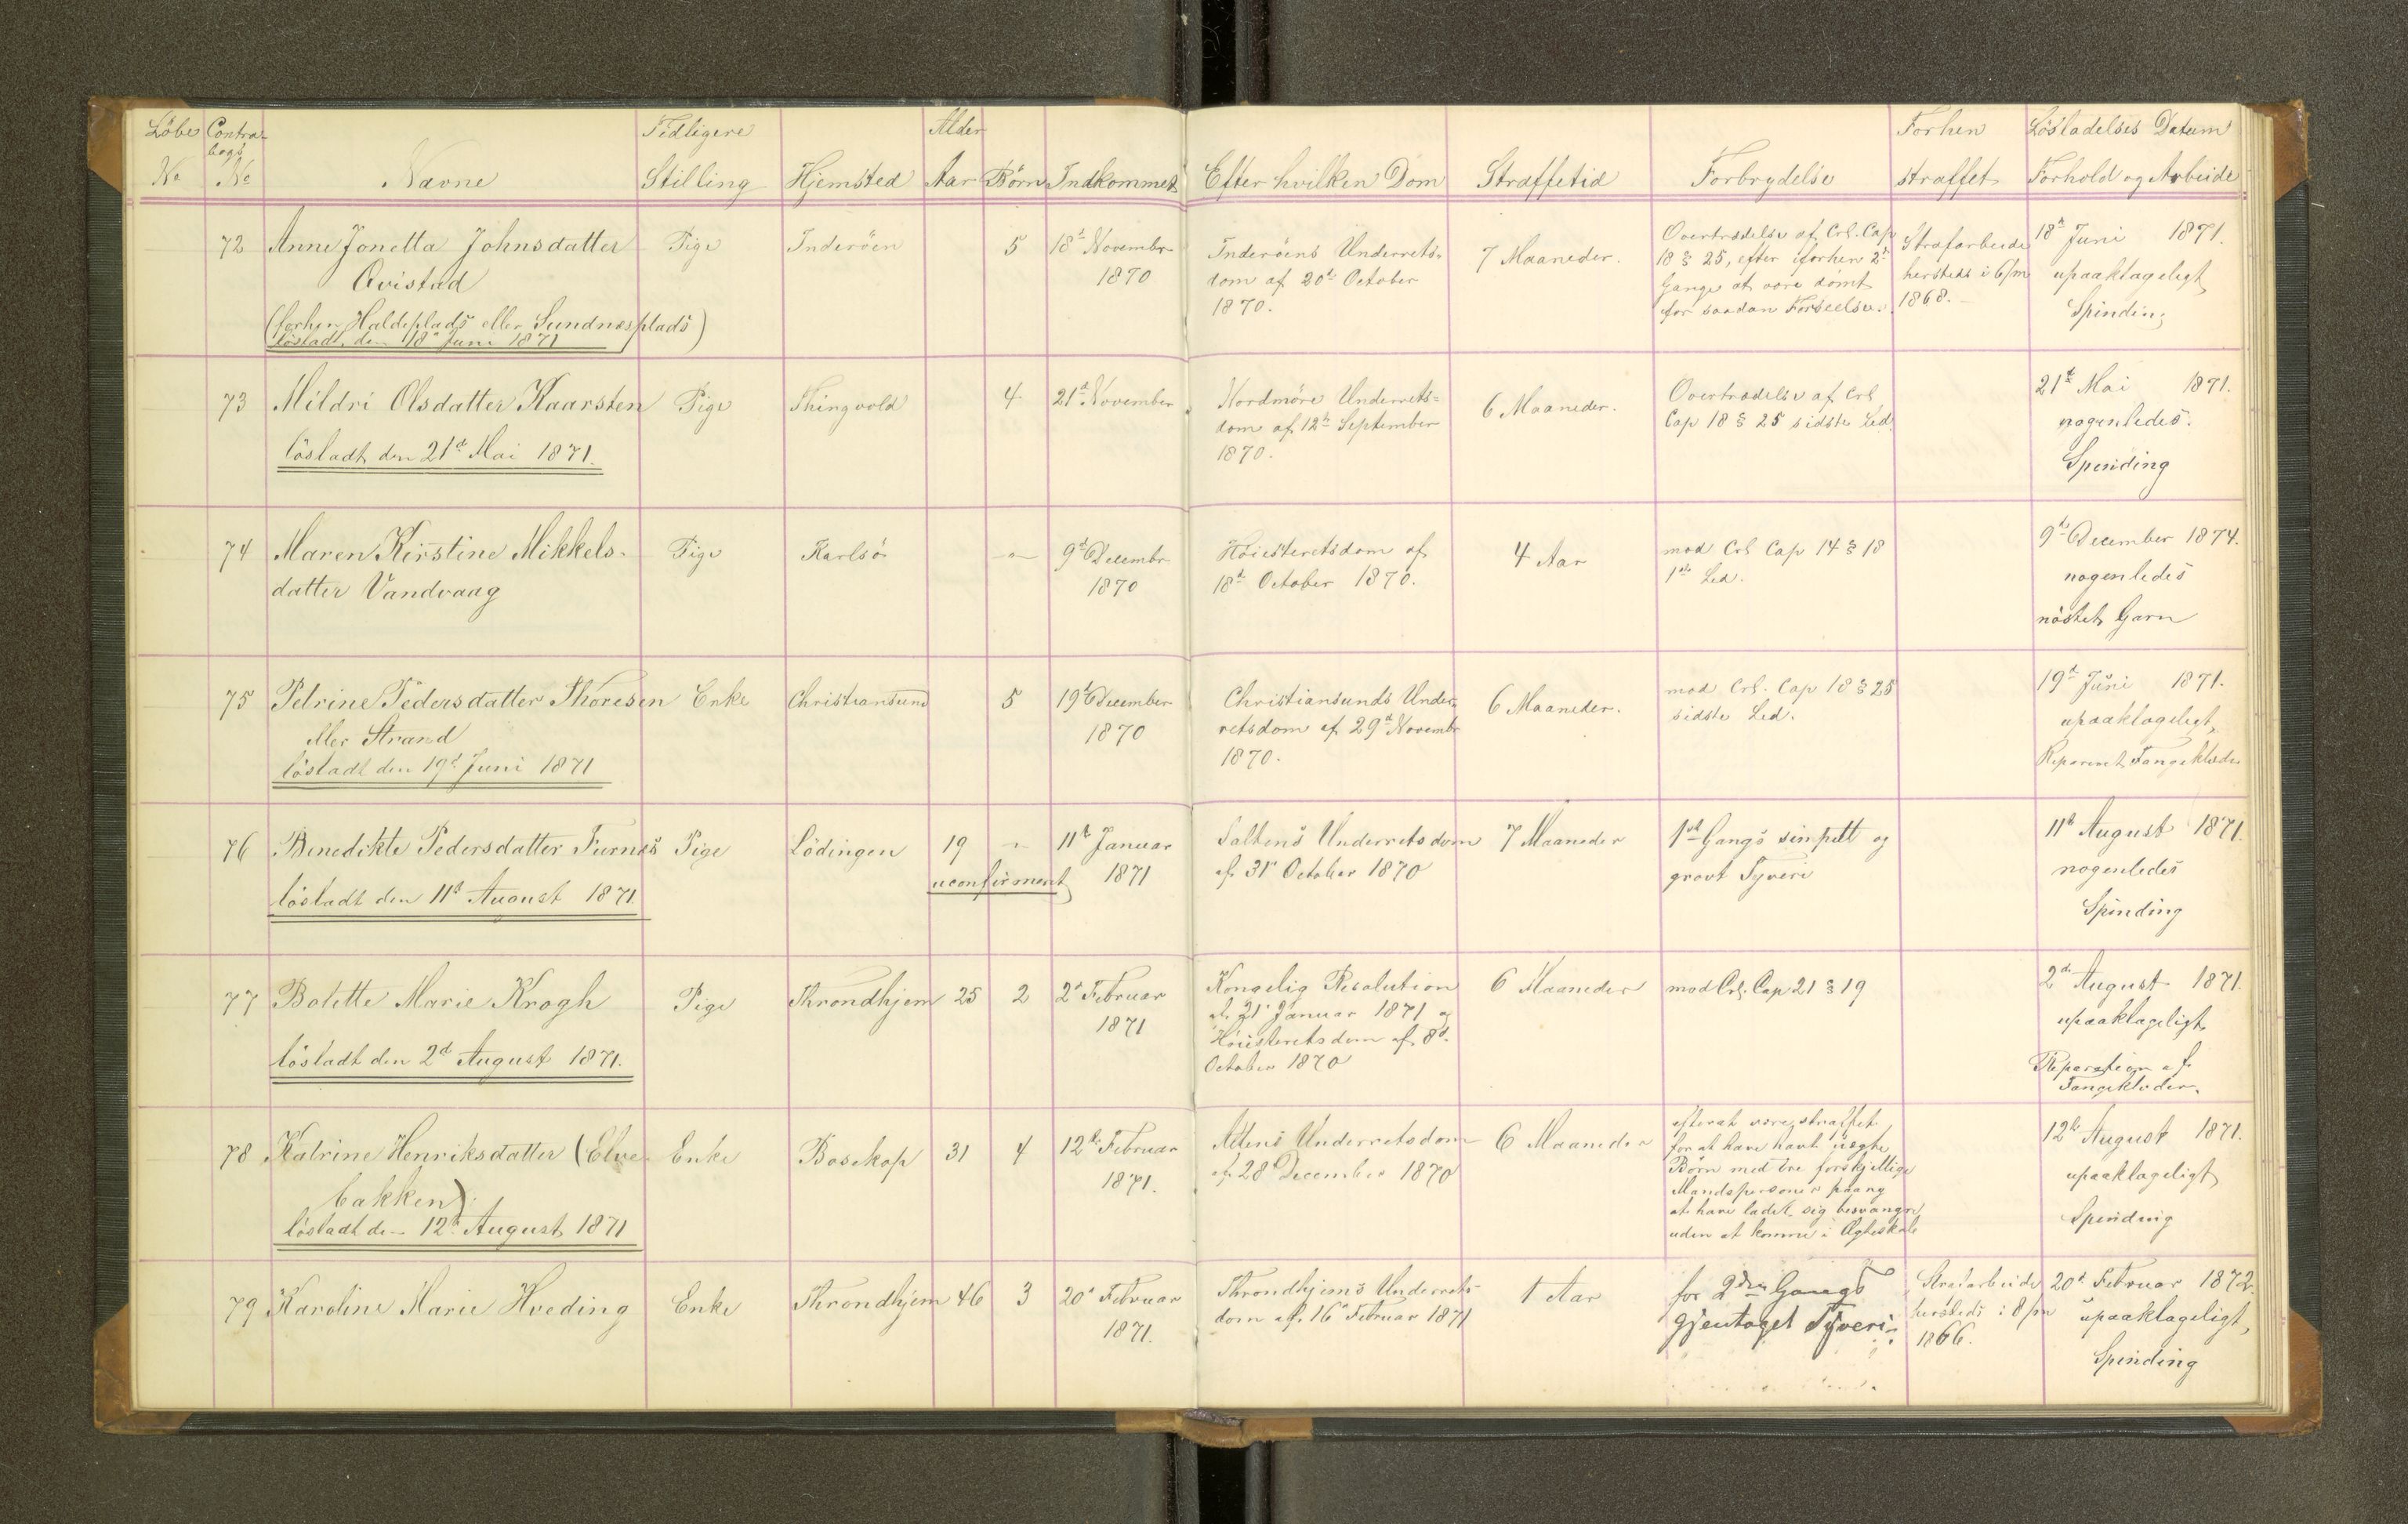 Löbe Contra- Tidligere Alder Forhen Lösladelses Datum
bogs
No No Navne Stilling Hjemsted Aar Börn Indkommet Efter hvilken Dom Straffetid Forbrydelse straffet Forhold og Arbeide
72 Anne Jonetta Johnsdatter Pige Inderöen 5 18d Novembr
Qvistad 1870
(forhen Haldeplads eller Sundnæsplads)
lösladt den 18d Juni 1871
Inderöens Underrets-
dom af 20d October
1870.
7 Maaneder.
Overtrædelse af Crl. Cap
18 § 25, efter iforhen 2d
Gange at være dömt
for saadan Forseelse.
Strafarbeide
hersteds i 6/m
1868.
18d Juni 1871.
upaaklageligt
Spinding
73 Mildri Olsdatter Kaarsten Pige Thingvold 4 21d November
lösladt den 21d Mai 1871.
Nordmöre Underrets-
dom af 12te September
1870.
6 Maaneder.
Overtrædelse af Crl
Cap 18 § 25 sidste Led.
21d Mai 1871.
nogenledes.
Spinding
74 Maren Kirstine Mikkels- Pige Karlsö - 9d Decembr
datter Vandvaag 1870
Höiesteretsdom af
18d October 1870.
4 Aar
mod Crl Cap 14 § 18
1ste Led.
9d December 1874.
nogenledes
nöstet Garn
75 Petrine Pedersdatter Thoresen Enke Christiansund 5 19d December
eller Strand 1870
lösladt den 19d Juni 1871
Christiansunds Under-
retsdom af 29d Novembr
1870.
6 Maaneder.
mod Crl. Cap 18 § 25
sidste Led.
19d Juni 1871.
upaaklageligt,
Repareret Fangeklæder
76 Benedikte Pedersdatter Furnes Pige Lödingen 19 - 11te Januar
uconfirmert 1871
lösladt den 11te August 1871.
Saltens Underretsdom
af 31 October 1870
7 Maaneder
1ste Gangs simpelt og
grovt Tyveri
11te August 1871.
nogenledes
Spinding
77 Bolette Marie Krogh Pige Throndhjem 25 2 2d Februar
1871
lösladt den 2d August 1871.
Kongelig Resolution
af 21 Januar 1871 og
Höiesteretsdom af 8d
October 1870
6 Maaneder
mod Crl. Cap 21 § 19
2den August 1871.
upaaklageligt
Reparation af
Fangeklæder.
78 Katrine Henriksdatter (Elve- Enke Bosekop 31 4 12te Februar
bakken). 1871.
lösladt den 12te August 1871
Altens Underretsdom
af 28 December 1870
6 Maaneder
efterat være straffet
for at have havt uægte
Börn med tre forskjellige
Mandspersoner paany
at have ladet sig besvangre
uden at komme i Ægteskab
12te August 1871.
upaaklageligt
Spinding
79 Karoline Marie Hveding Enke Throndhjem 46 3 20d Februar
1871.
Throndhjems Underrets-
dom af 16 Februar 1871
1 Aar
for 2den Gangs
gjentaget Tyveri.
Strafarbeide
hersteds i 8/m
1866.
20d Februar 1872.
upaaklageligt,
Spinding